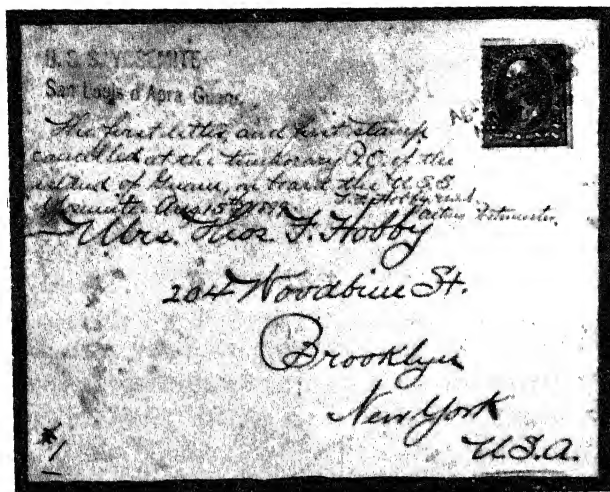 U. S. S. YOSEMITE
San Louis d'Apra, Guam.
The first letter and first stamp
cancelled at the temporary P.O. of the
island of Guam, on board the U.S.S.
Yosemite. Aug 15th 1899.
Acting Postmaster.
Mrs. Thos. F. Hobby
204 Woodbine St.
Brooklyn
New York
U.S.A.
#1